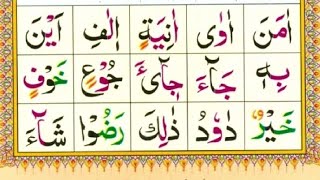 اٰمَنَ اٰوٰى اٰنِيَةٍ اٖلٰفِ اَيْنَ
بِهٖ جَآءَ جِاىْٓءَ جُوْعٍ خَوْفٍ
خَيْرٌ دَاوٗدُ ذٰلِكَ رَضُوْا شَآءَ